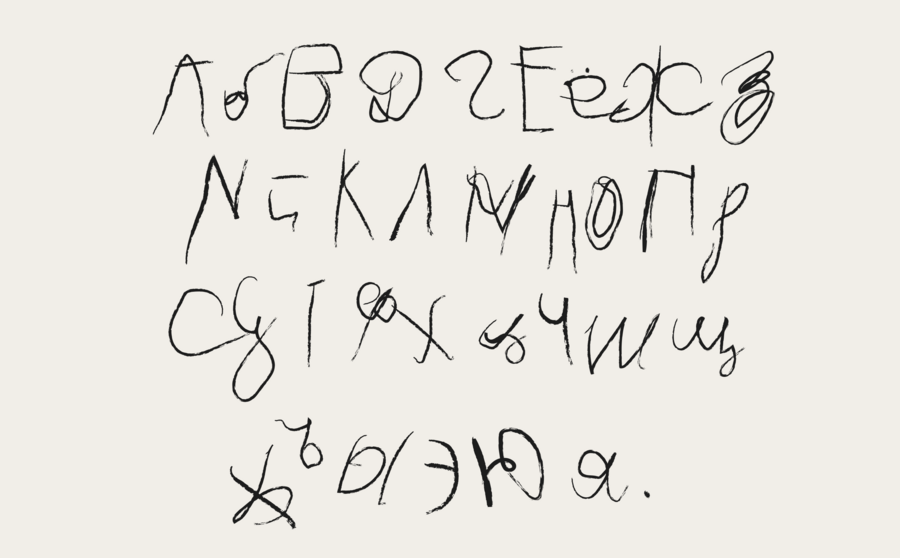 АбВДГЕёЖЗ
ИйКЛМНОПР
СУТФХцЧШщ
ЬъЫЭЮя.